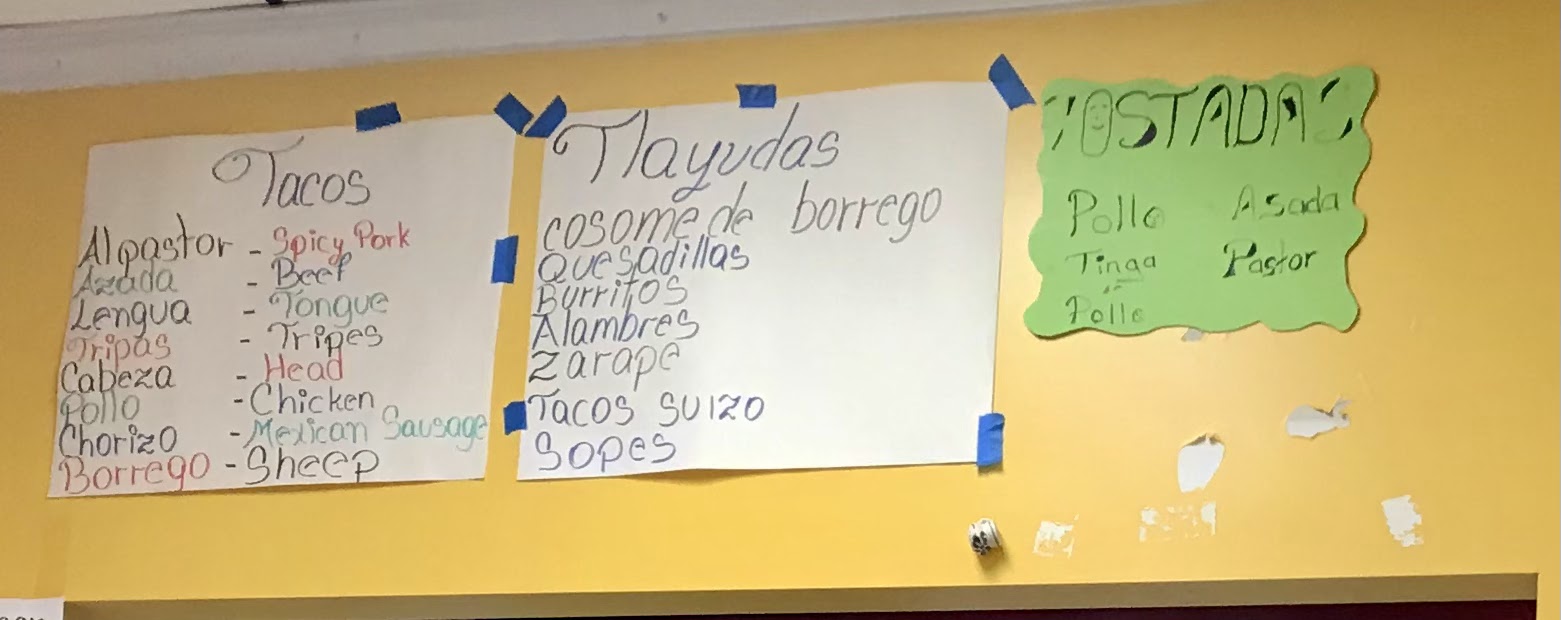 Tacos
Alpastor - Spicy Pork
Azada - Beef
Lengua - Tongue
Tripas - Tripes
Cabeza - Head
Pollo - Chicken
Chorizo - Mexican Sausage
Borrego - Sheep
Tlayudas
cosome de borrego
Quesadillas
Burritos
Alambres
Zarape
Tacos suizo
Sopes
TOSTADAS
Pollo Asada
Tinga Pastor
Pollo